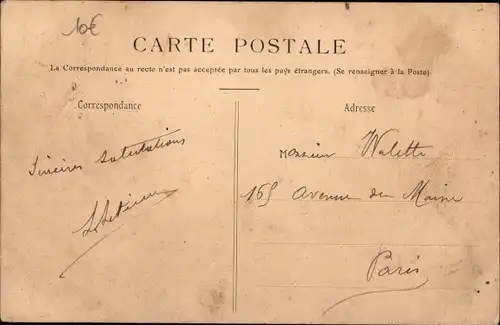 10€
CARTE POSTALE
La Correspondance au recto n'est pas acceptée par tous les pays étrangers. (Se renseigner à la Poste)
Correspondance
Adresse
Sincères salutations
Monsieur Walette
165 Avenue du Maine
Paris